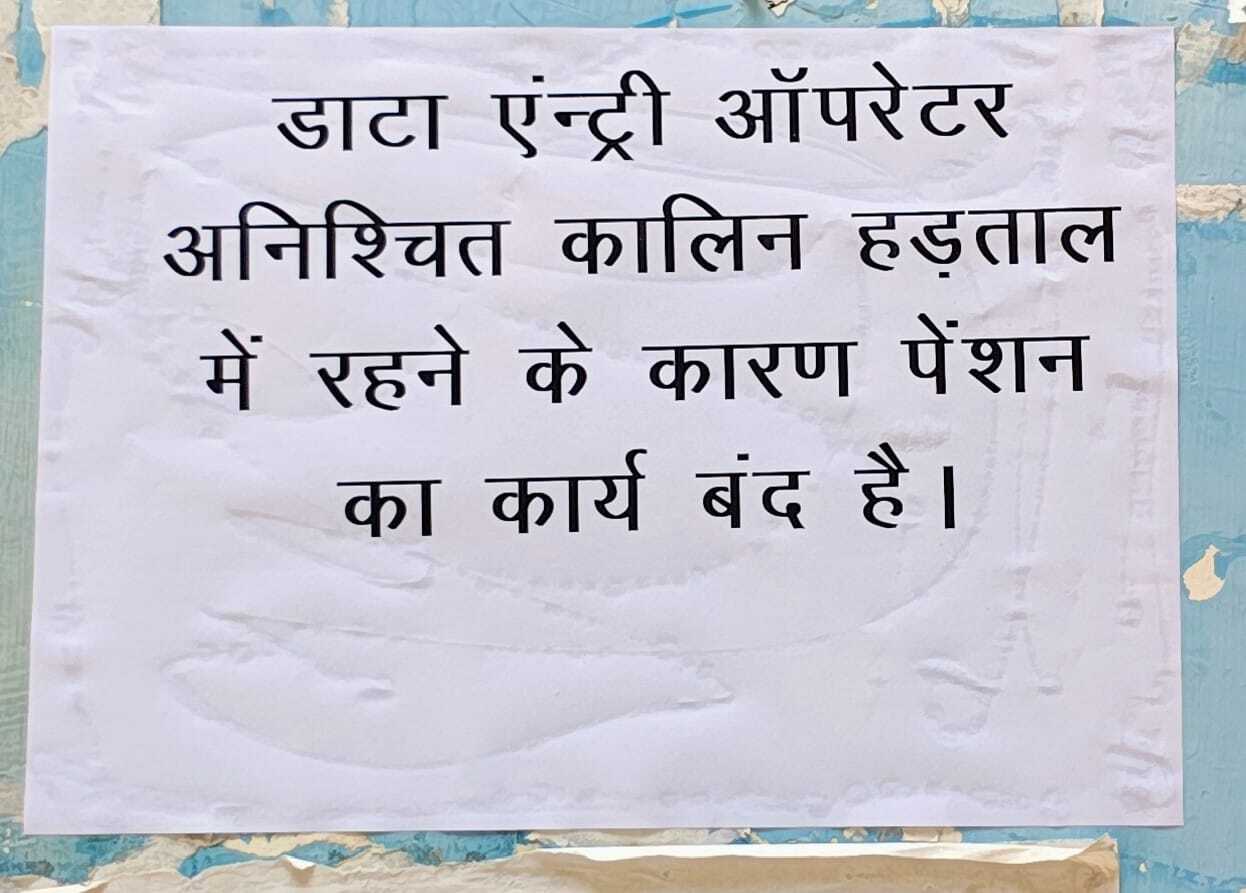 डाटा एंन्ट्री ऑपरेटर
अनिश्चित कालिन हड़ताल
में रहने के कारण पेंशन
का कार्य बंद है।